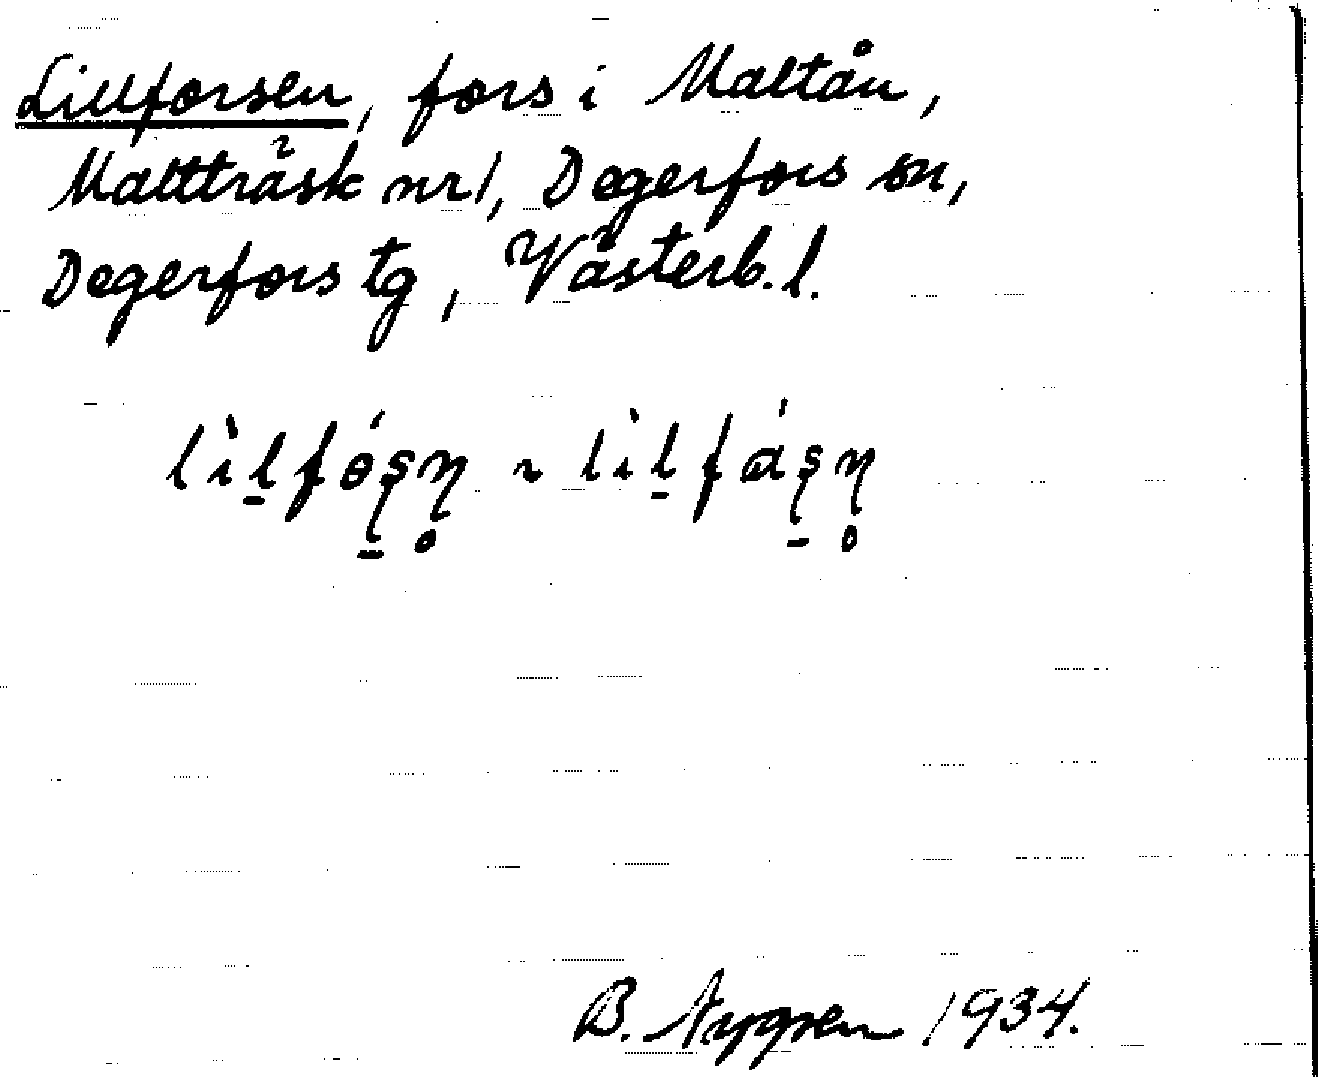 Lillforsen, fors i Maltån,
Maltträsk nr 1, Degerfors sn,
Degerfors tg, Västerb. l.
lìl̠fɵ́ʂ̠ɳ̥ ~ lìl̠fáʂ̠ɳ̥
B. Nygren 1934.